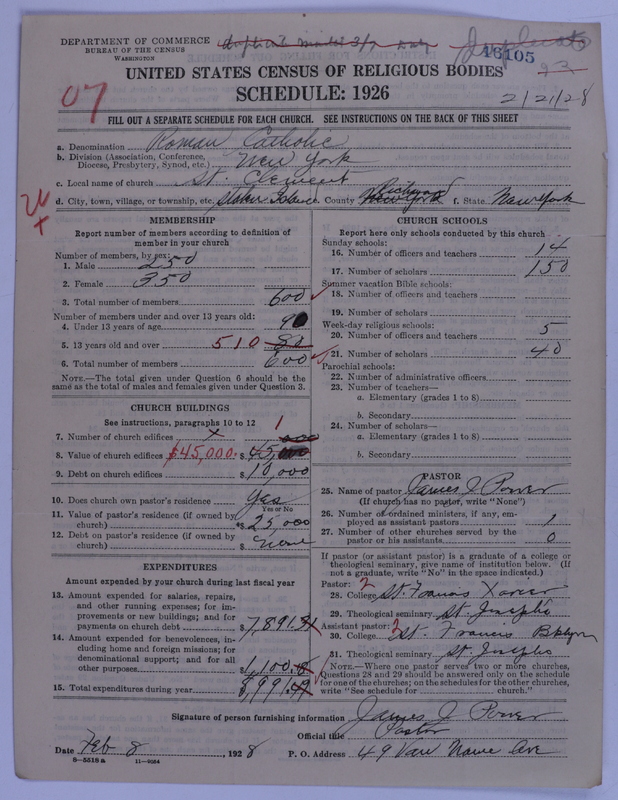 DEPARTMENT OF COMMERCE
BUREAU OF THE CENSUS
WASHINGTON
Duplicate
46105
UNITED STATES CENSUS OF RELIGIOUS BODIES
SCHEDULE: 1926
07
2/21/28
FILL OUT A SEPARATE SCHEDULE FOR EACH CHURCH. SEE INSTRUCTIONS ON THE BACK OF THIS SHEET
a. Denomination Roman Catholic
b. Division (Association, Conference, Diocese, Presbytery, Synod, etc.) New York
c. Local name of church St. Clement
d. City, town, village, or township, etc. Staten Island County New York Richmond f. State New York
MEMBERSHIP
Report number of members according to definition of member in your church
Number of members, by sex:
1. Male 250
2. Female 350
3. Total number of members 600
Number of members under and over 13 years old:
4. Under 13 years of age 90
5. 13 years old and over 510
6. Total number of members 600
NOTE.—The total given under Question 6 should be the same as the total of males and females given under Question 3.
CHURCH BUILDINGS
See instructions, paragraphs 10 to 12
7. Number of church edifices 1
8. Value of church edifices $45,000. $ 45,000
9. Debt on church edifices $ 10,000
10. Does church own pastor's residence Yes
Yes or No
11. Value of pastor's residence (if owned by church) $ 25,000
12. Debt on pastor's residence (if owned by church) $ None
EXPENDITURES
Amount expended by your church during last fiscal year
13. Amount expended for salaries, repairs, and other running expenses; for improvements or new buildings; and for payments on church debt $ 7,891.
14. Amount expended for benevolences, including home and foreign missions; for denominational support; and for all other purposes $ 1,100.
15. Total expenditures during year $ 8,991.
CHURCH SCHOOLS
Report here only schools conducted by this church
Sunday schools:
16. Number of officers and teachers 14
17. Number of scholars 150
Summer vacation Bible schools:
18. Number of officers and teachers
19. Number of scholars
Week-day religious schools:
20. Number of officers and teachers 5
21. Number of scholars 40
Parochial schools:
22. Number of administrative officers
23. Number of teachers—
a. Elementary (grades 1 to 8)
b. Secondary
24. Number of scholars—
a. Elementary (grades 1 to 8)
b. Secondary
PASTOR
25. Name of pastor James J Power
(If church has no pastor, write "None")
26. Number of ordained ministers, if any, employed as assistant pastors 1
27. Number of other churches served by the pastor or his assistants 0
If pastor (or assistant pastor) is a graduate of a college or theological seminary, give name of institution below. (If not a graduate, write "No" in the space indicated.)
Pastor: 2
28. College St. Francis Xavier
29. Theological seminary St. Josephs
Assistant pastor: 3
30. College St. Francis Bklyn
31. Theological seminary St. Josephs
NOTE.—Where one pastor serves two or more churches, Questions 28 and 29 should be answered only on the schedule for one of the churches; on the schedules for the other churches, write "See schedule for church."
Signature of person furnishing information James J. Power
Official title Pastor
Date Feb 8 1928 P. O. Address 49 Van Name Ave
8—5518 a 11—9064